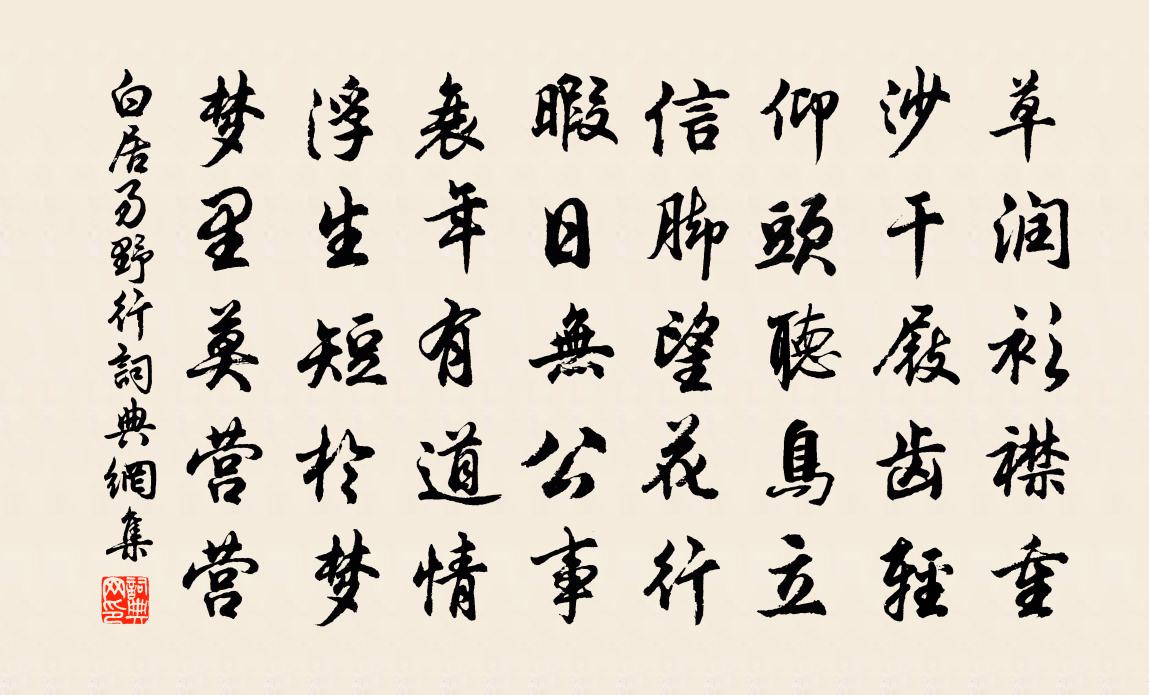 草润衫襟重
沙干屐齿轻
仰頭聴鳥立
信脚望花行
暇日無公事
衰年有道情
浮生短於梦
梦里莫营营
白居易野行詞典網集
詞典網印